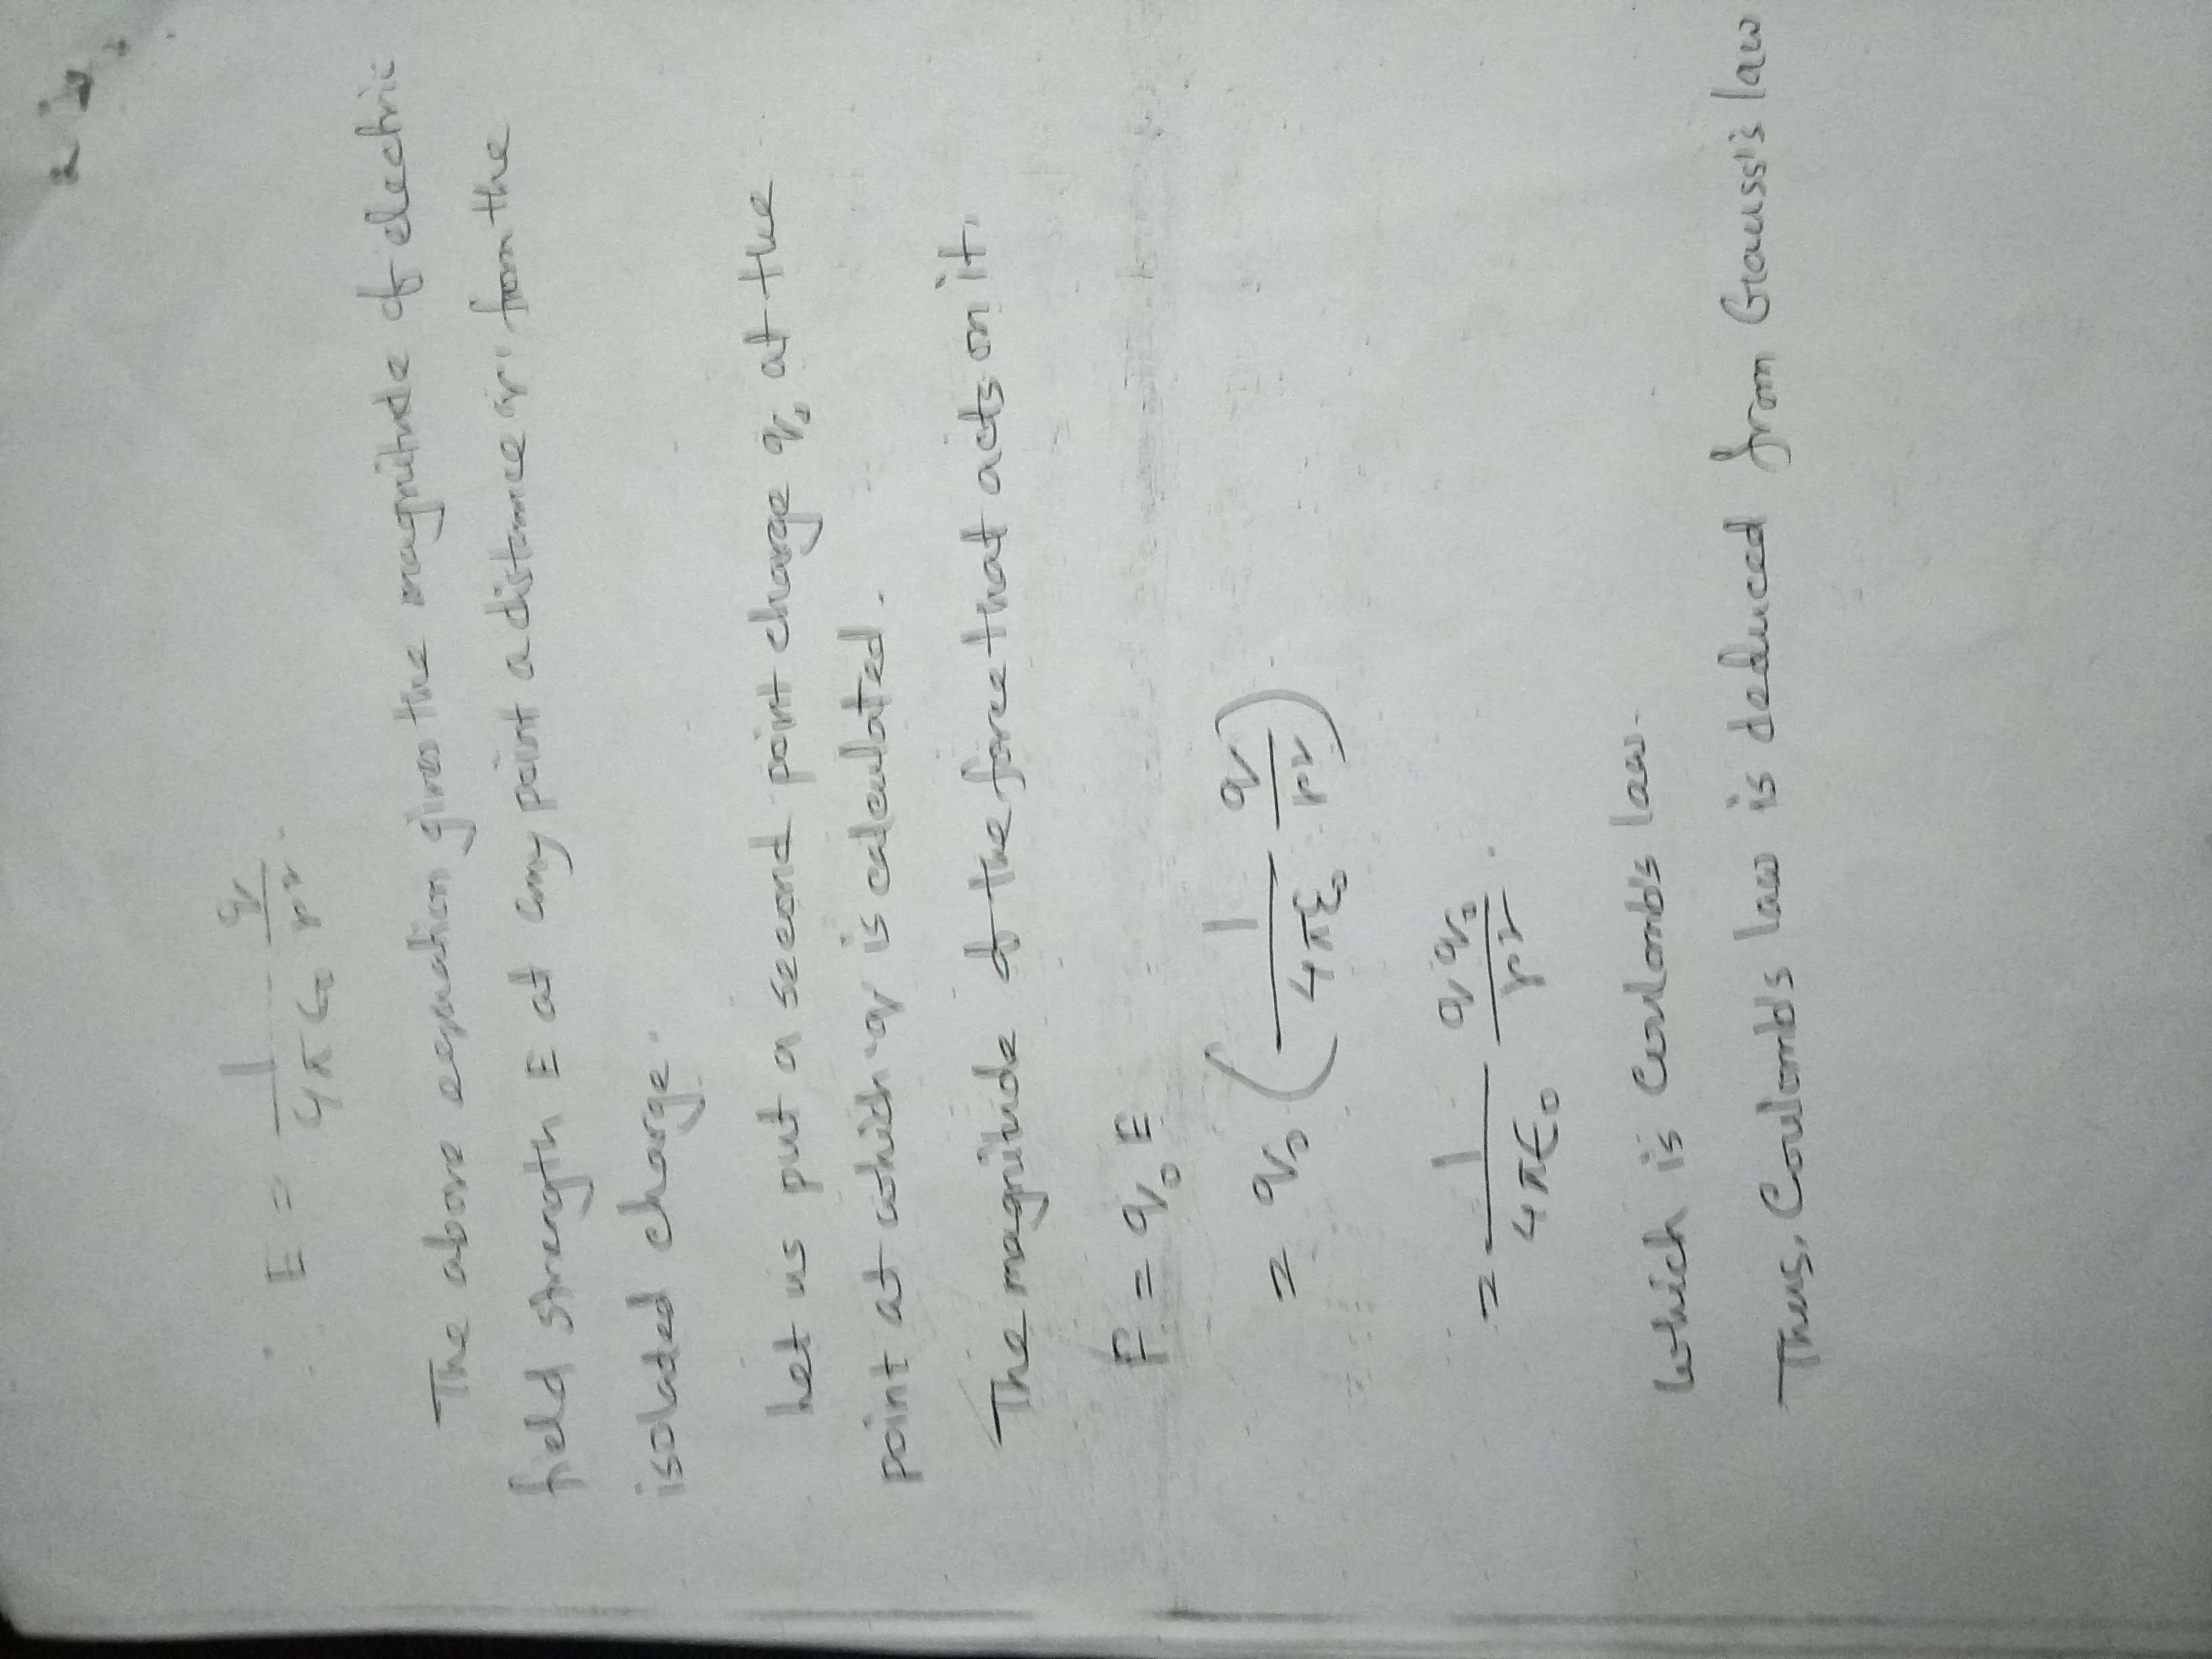 ∴ E = 1/4πϵ₀ q/r².
The above equation gives the magnitude of electric
field strength E at any point a distance 'r' from the
isolated charge.
Let us put a second point charge q₀ at the
point at which q is calculated.
The magnitude of the force that acts on it,
F = q₀ E
= q₀ (1/4πε₀ q/r²)
= 1/4πϵ₀ q q₀/r².
Which is Coulomb's law.
Thus, Coulomb's law is deduced from Gauss's law